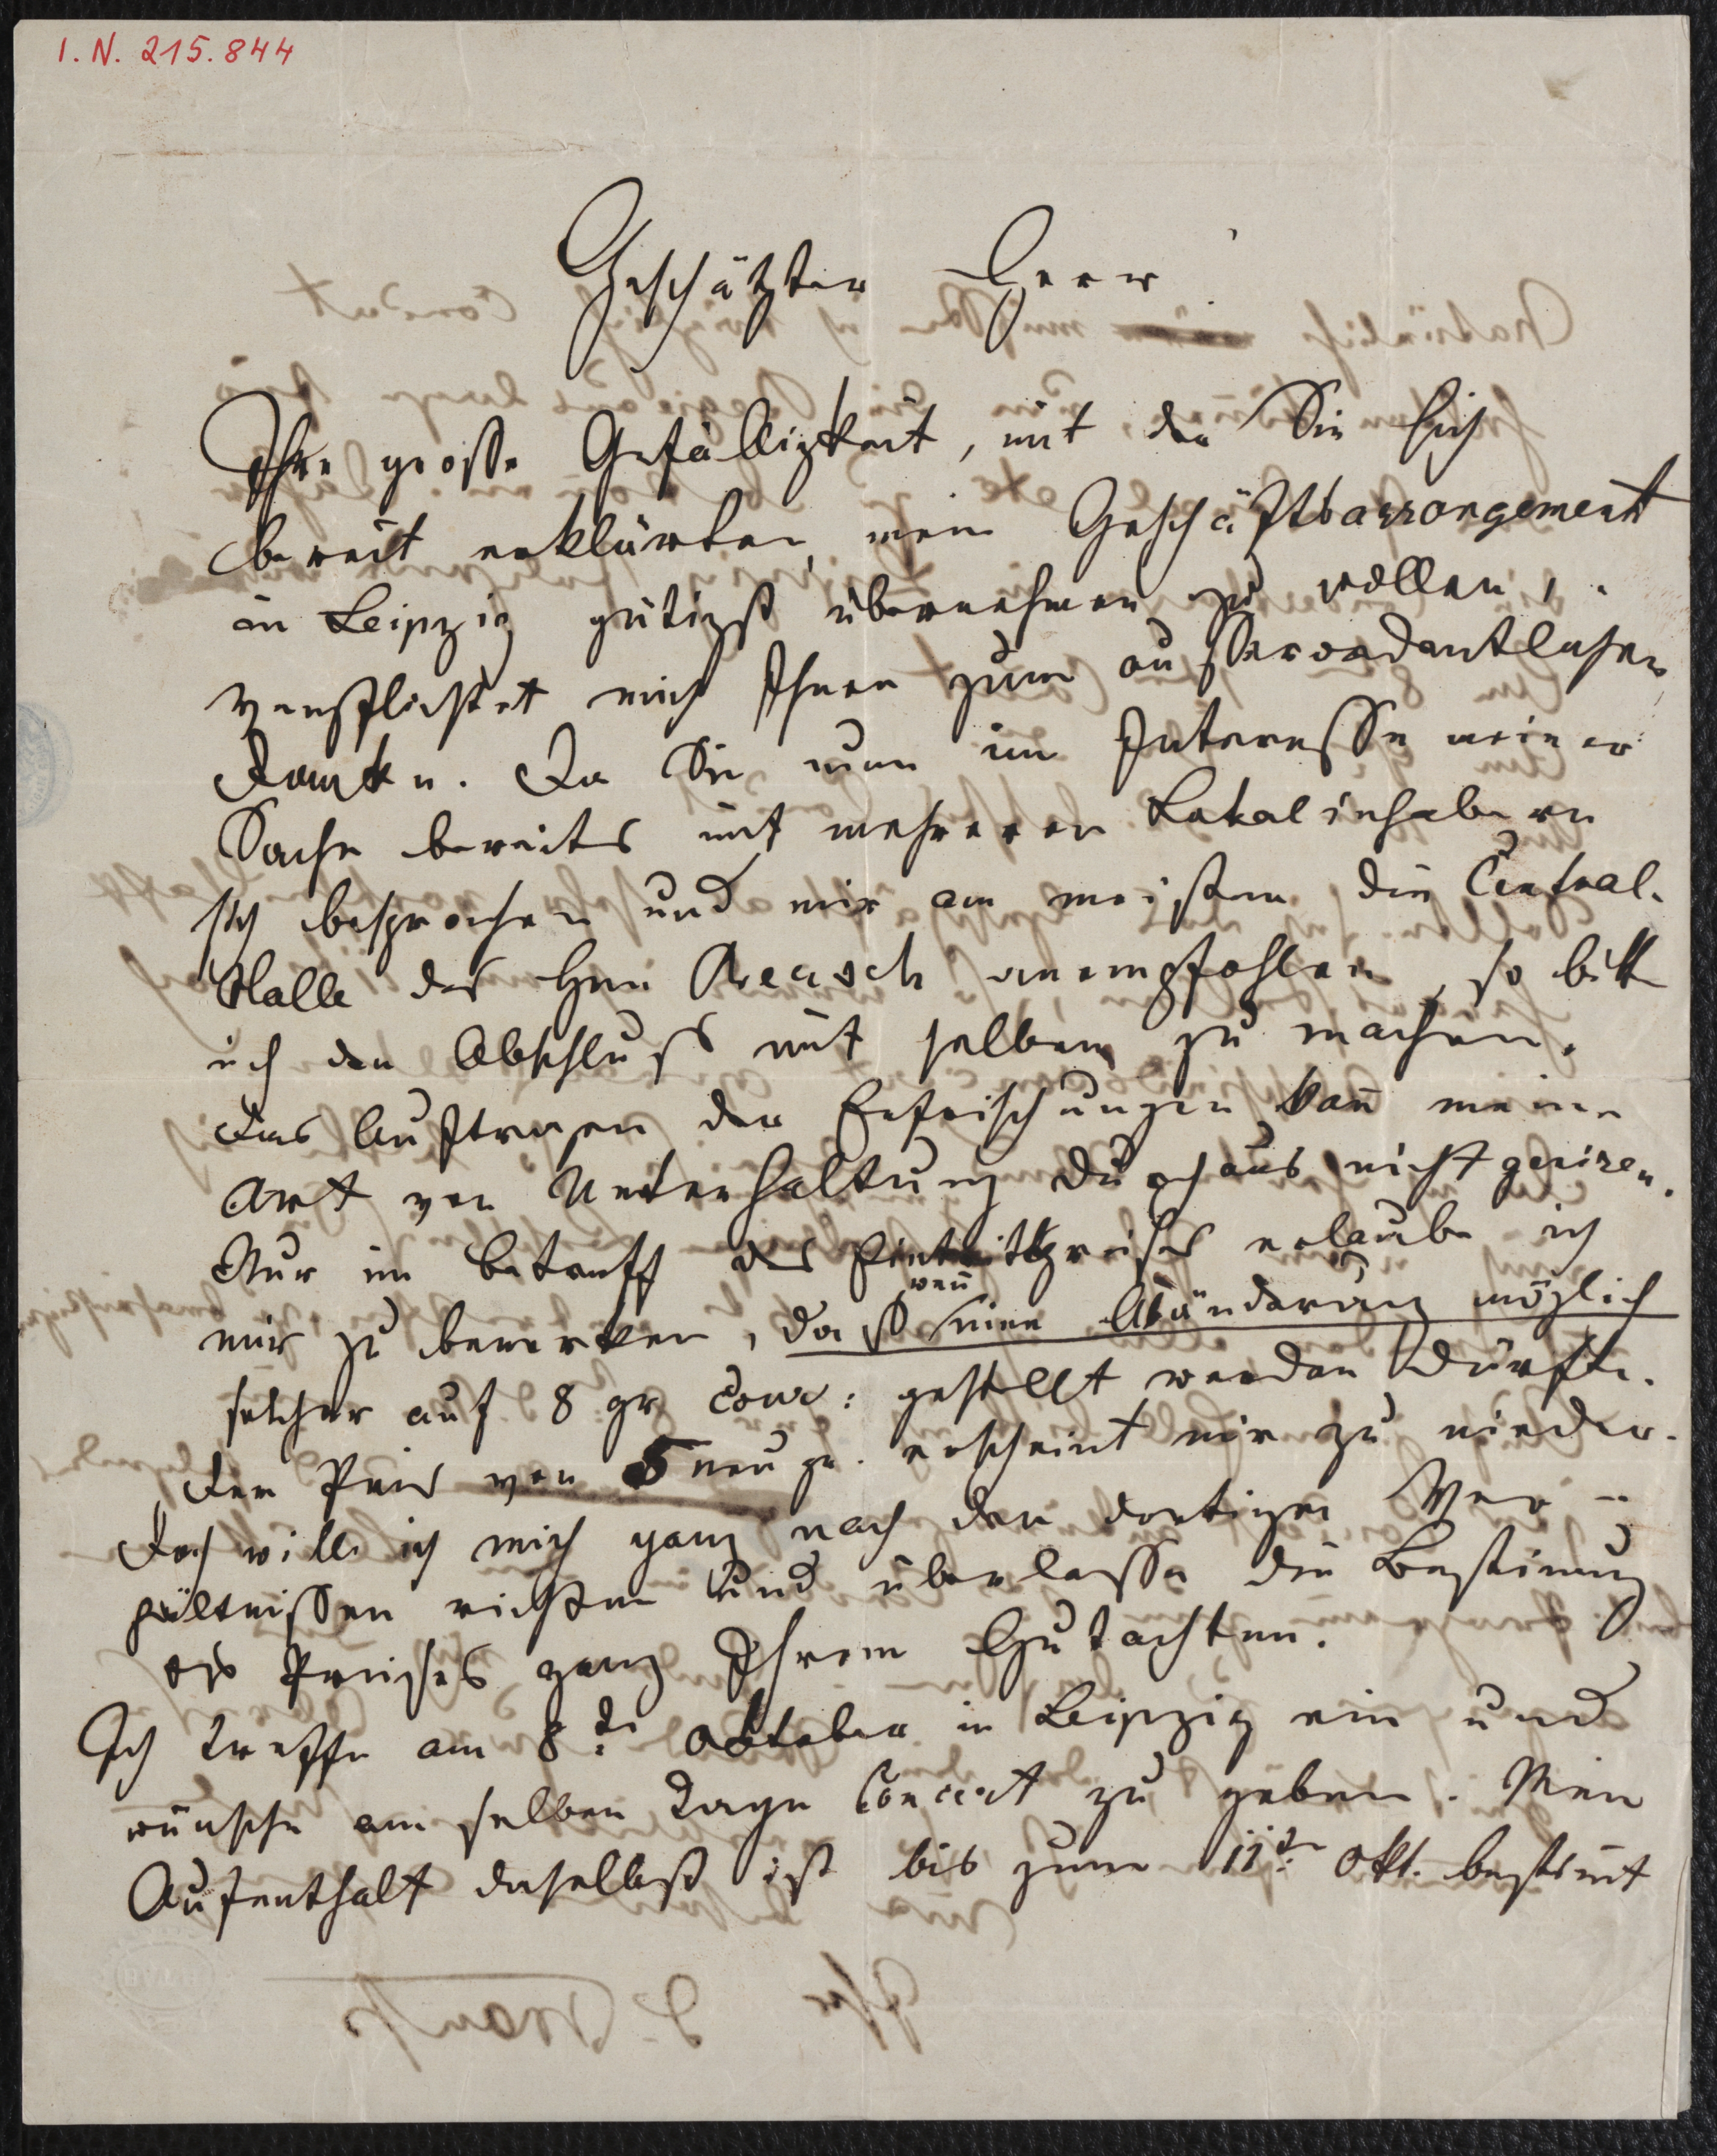 I.N. 215.844
Geschätzter Herr!
Ihre große Gefälligkeit, mit der Sie sich
bereit erklärten, mein Geschäftsarrangement
in Leipzig gütigst übernehmen zu wollen,
verpflichtet mich Ihnen zum außerordentlichen
Danke. Da Sie nun im Interesse meiner
Sache bereits mit mehreren Lokalinhabern
sich besprochen und mir am meisten die Central-
Halle des Hrn anempfohlen, so bitte
ich den Abschluß mit selbem zu machen.
Das Auftragen der Erfrischungen kañ meine
Art von Unterhaltung durchaus nicht geniren.
Nur im Betreff des Eintrittspreises erlaube ich
mir zu bemerken, daß weñ eine Abänderung möglich
selcher auf 8 gr Cour: gestellt werden dürfte.
Der Preis von 5 neugr. erscheint mir zu nieder.
Doch will ich mich ganz nach den dortigen Ver-
hältnissen richten und überlasse die Bestim̄ung
des Preises ganz Ihrem Gutachten.
Ich treffe am 8t Oktober in Leipzig ein und
wünsche am selben Tage Concert zu geben. Mein
Aufenthalt daselbst ist bis zum 11t Okt. bestim̄t